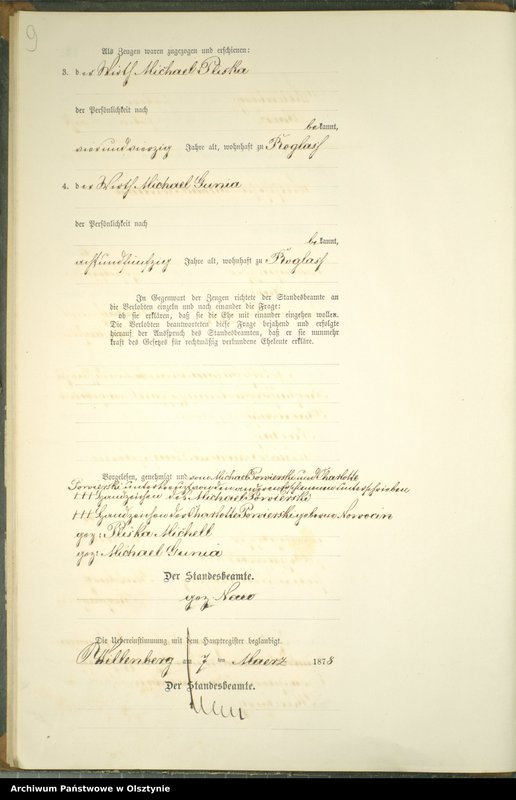 9
Als Zeugen waren zugezogen und erschienen:
3. der Wirth Michael Pliska
der Persönlichkeit nach
bekannt,
vierundvierzig Jahre alt, wohnhaft zu Roglass
4. der Wirth Michael Gunia
der Persönlichkeit nach
bekannt,
achtundfünfzig Jahre alt, wohnhaft zu Roglass
In Gegenwart der Zeugen richtete der Standesbeamte an
die Verlobten einzeln und nach einander die Frage:
ob sie erklären, daß sie die Ehe mit einander eingehen wollen.
Die Verlobten beantworteten diese Frage bejahend und erfolgte
hierauf der Ausspruch des Standesbeamten, daß er sie nunmehr
kraft des Gesetzes für rechtmäßig verbundene Eheleute erkläre.
Vorgelesen, genehmigt und von Michael und Charlotte
unterkreuzt, von den andern unterschrieben
+++ Handzeichen des Michael
+++ Handzeichen der Charlotte geborene
gez: Pliska Michell
gez: Michael Gunia
Der Standesbeamte.
gez.
Die Uebereinstimmung mit dem Hauptregister beglaubigt.
Willenberg am 7 ten Maerz 1878
Der Standesbeamte.
Archiwum Państwowe w Olsztynie